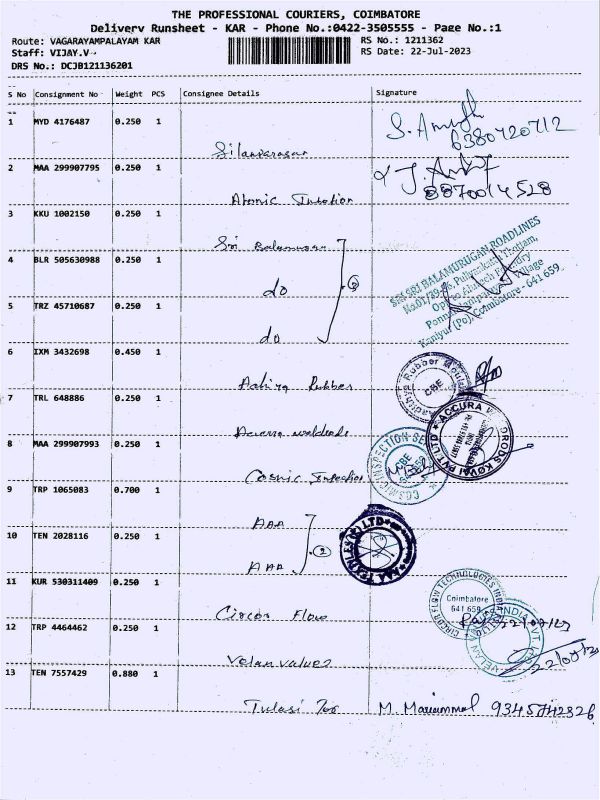 THE PROFESSIONAL COURIERS, COIMBATORE
Delivery Runsheet - KAR - Phone No.:0422-3505555 - Page No.:1
Route: VAGARAYAMPALAYAM KAR
RS No.: 1211362
Staff: VIJAY.V
RS Date: 22-Jul-2023
DRS No.: DCJB121136201
S No Consignment No Weight PCS Consignee Details Signature
1 MYD 4176487 0.250 1
S. 6380720712
Silambarasan
2 MAA 299907795 0.250 1
J. 8870014528
Atomic
3 KKU 1002150 0.250 1
Sri Balamurugan
4 BLR 505630988 0.250 1
do
3
SRI SRI BALAMURUGAN ROADLINES
Kaniyur (Po), Coimbatore - 641 659
5 TRZ 45710687 0.250 1
do
6 IXM 3432698 0.450 1
Rubber
Rubber
CBE
7 TRL 648886 0.250 1
ACCURA KOVAI PVT LTD
8 MAA 299907993 0.250 1
Cosmic
COSMIC INSPECTION
CBE
9 TRP 1065083 0.700 1
AAA
10 TEN 2028116 0.250 1
AAA
2
11 KUR 530311409 0.250 1
Circor Flow
CIRCOR FLOW TECHNOLOGIES INDIA
Coimbatore
641 659
12 TRP 4464462 0.250 1
Velan Valves
VELAN INDIA PVT.
13 TEN 7557429 0.880 1
Tulasi
M. Mariammal